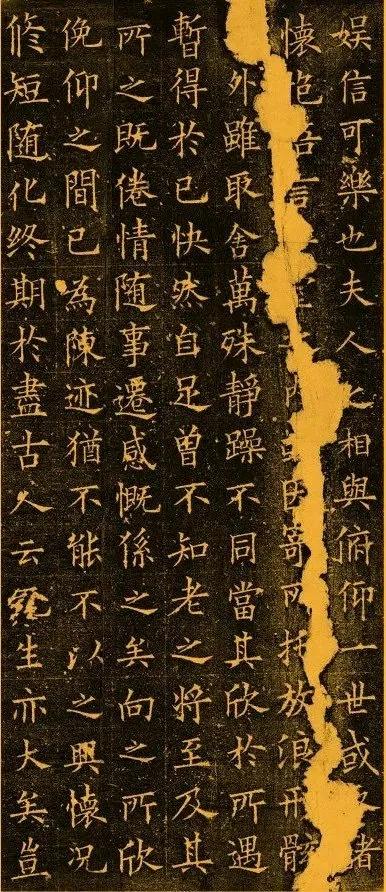 娛信可樂也夫人之相與俯仰一世或諸
懷抱悟言室或因寄所托放浪形骸
外雖取舍萬殊靜躁不同當其欣於所遇
暫得於己快然自足曾不知老之將至及其
所之既倦情随事遷感慨係之矣向之所欣
俛仰之間已為陳迹猶不能不以之興懷況
修短随化終期於盡古人云死生亦大矣豈